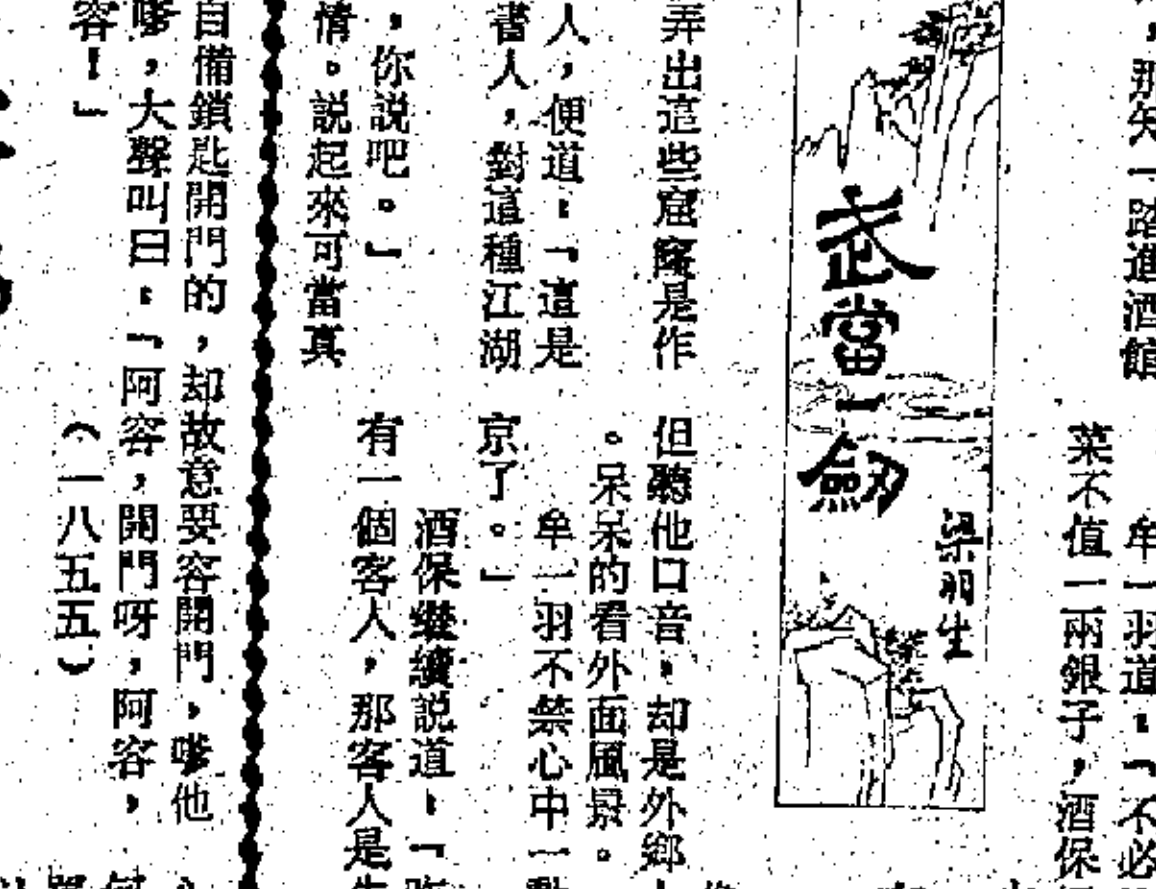 那知一踏進酒館
牟一羽道：「不必
菜不值一兩銀子，酒保
武當一劍
梁羽生
弄出這些窟窿是作
人，便道：「這是
書人，對這種江湖
，你説吧。」
情。説起來可當真
但聽他口音，却是外鄉
。呆呆的看外面風景。
牟一羽不禁心中一動
京了。」
酒保繼續説道：「
有一個客人，那客人是
自備鎖匙開門的，却故意要容開門，嗲他
嗲，大聲叫曰：「阿容，開門呀，阿容，
容！」
（一八五五）